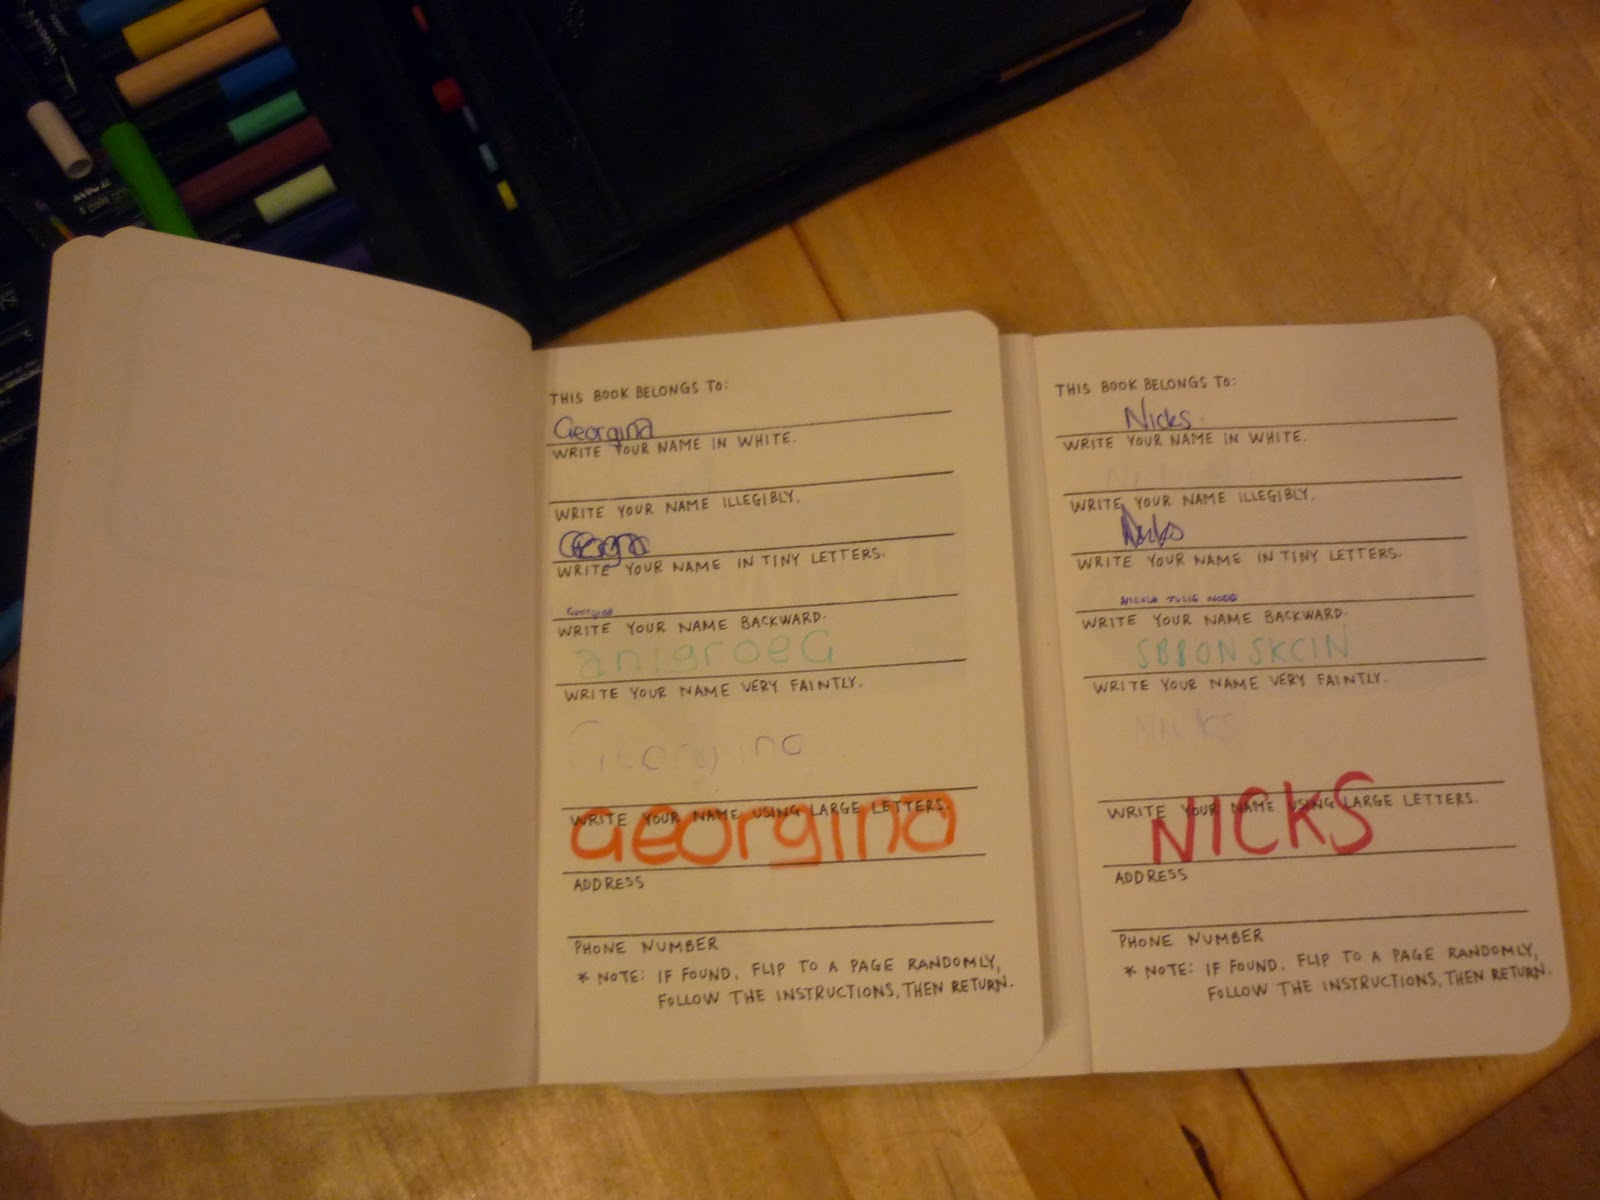 THIS BOOK BELONGS TO:
Georgina
WRITE YOUR NAME IN WHITE.
WRITE YOUR NAME ILLEGIBLY.
WRITE YOUR NAME IN TINY LETTERS.
Georgina
WRITE YOUR NAME BACKWARD.
anigroeG
WRITE YOUR NAME VERY FAINTLY.
Georgina
WRITE YOUR NAME USING LARGE LETTERS.
Georgina
ADDRESS
PHONE NUMBER
* NOTE: IF FOUND, FLIP TO A PAGE RANDOMLY,
FOLLOW THE INSTRUCTIONS, THEN RETURN.
THIS BOOK BELONGS TO:
Nicks
WRITE YOUR NAME IN WHITE.
WRITE YOUR NAME ILLEGIBLY.
Nicks
WRITE YOUR NAME IN TINY LETTERS.
WRITE YOUR NAME BACKWARD.
SBBON SKCIN
WRITE YOUR NAME VERY FAINTLY.
NICKS
WRITE YOUR NAME USING LARGE LETTERS.
NICKS
ADDRESS
PHONE NUMBER
* NOTE: IF FOUND, FLIP TO A PAGE RANDOMLY,
FOLLOW THE INSTRUCTIONS, THEN RETURN.